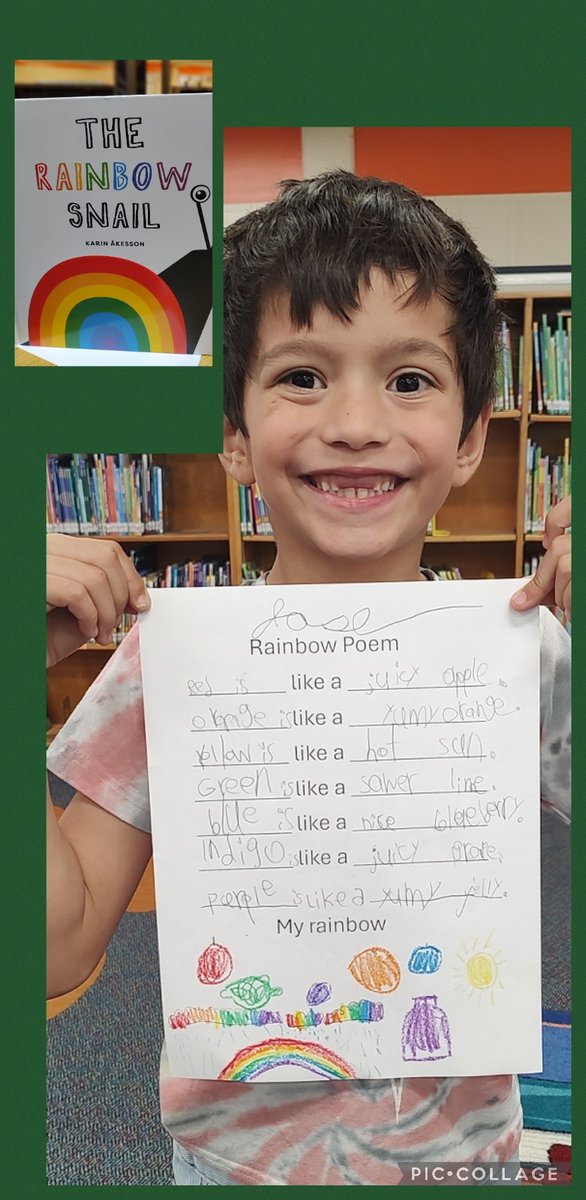 THE
RAINBOW
SNAIL
KARIN ÅKESSON
Jose
Rainbow Poem
Red is like a juicy apple.
orange is like a yumy orange.
yellow is like a hot sun.
Green is like a sawer lime.
blue is like a nise blueberry.
Indigo is like a juicy grape.
pearple is like a yumy jelly.
My rainbow
PIC•COLLAGE